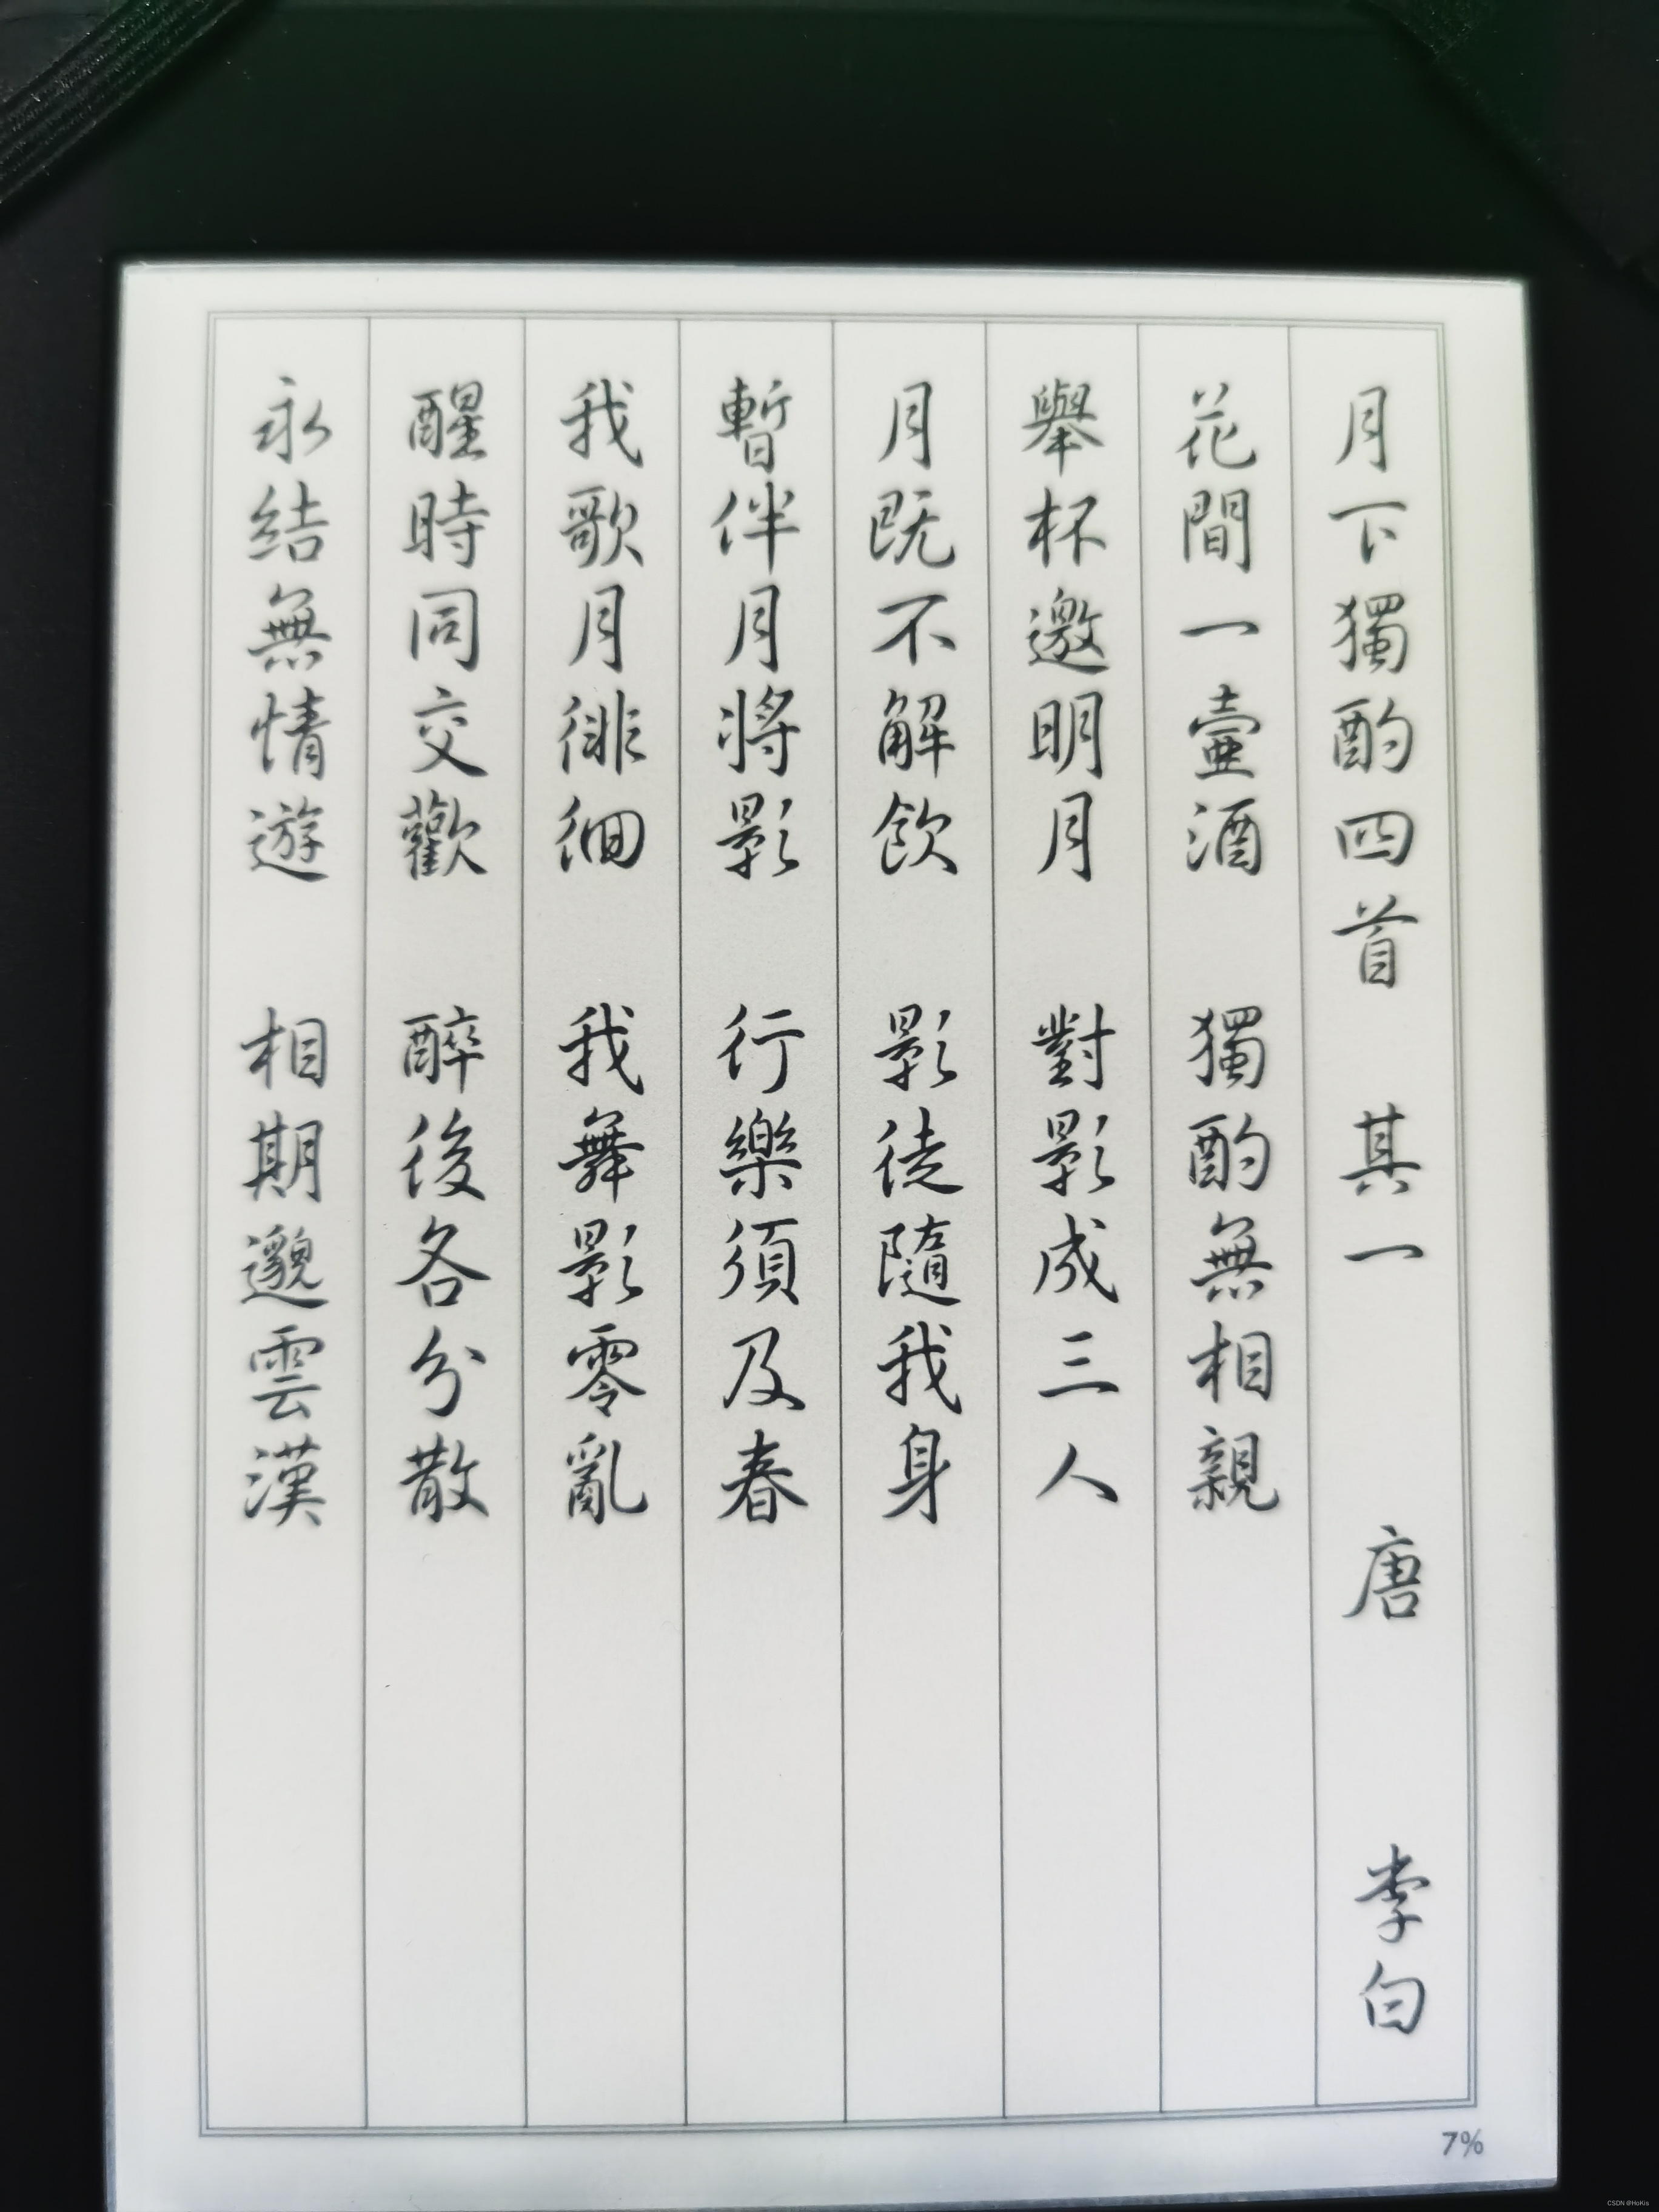 月下獨酌四首 其一 唐 李白
花間一壺酒 獨酌無相親
舉杯邀明月 對影成三人
月既不解飲 影徒隨我身
暫伴月將影 行樂須及春
我歌月徘徊 我舞影零亂
醒時同交歡 醉後各分散
永結無情遊 相期邈雲漢
7%
CSDN @HoKis